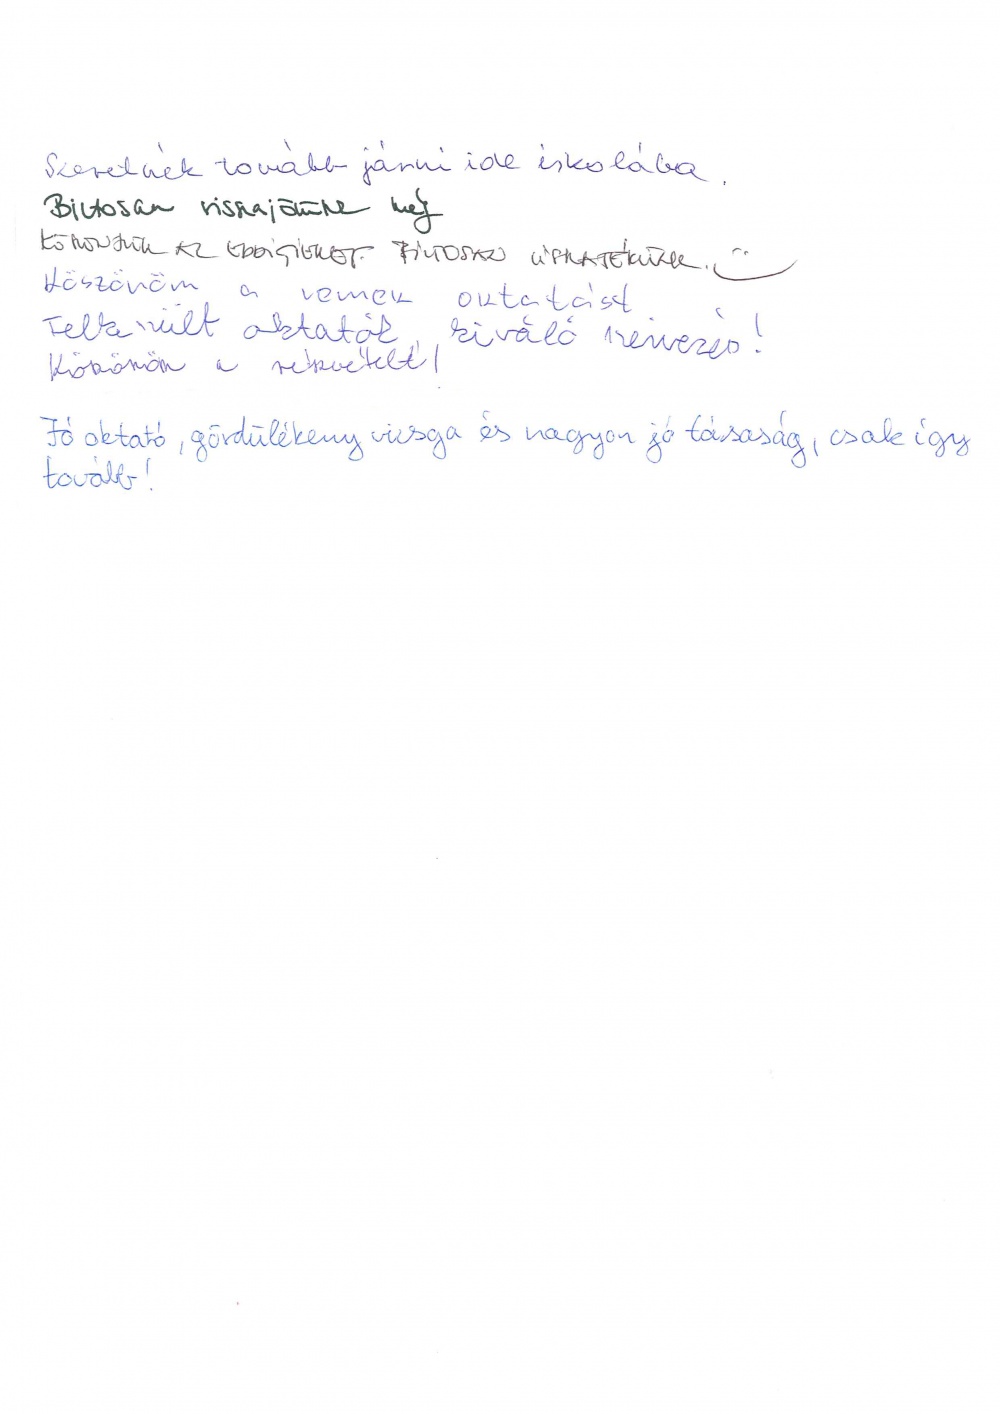 Szeretnék tovább járni ide iskolába.
Biztosan visszajövünk még
Köszönjük az eddigieket. Biztosan visszatérünk.
Köszönöm a remek oktatást
Felkészült oktatók, kiváló szervezés!
Köszönöm a részvételt!
Jó oktató, gördülékeny vizsga és nagyon jó társaság, csak így
tovább!